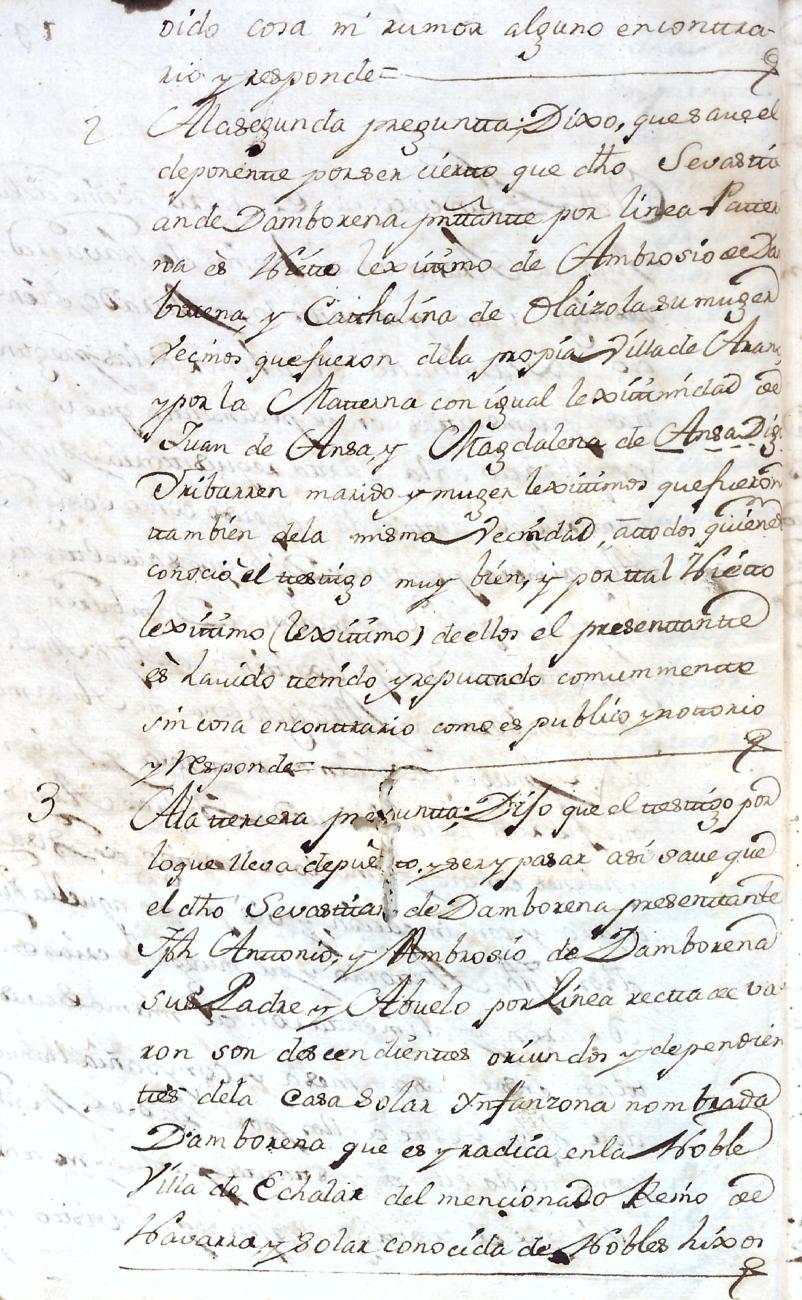 oido cosa ni rumor alguno encontra-
rio y responde=
2 Ala segunda preguntta; Dixo, que save el
deponentte por ser ciertto que dho Sevastti
an de Damborena presttantte por linea Patter
na ès Nietto lexittimo de Ambrosio de Da
borena, y Catthalina de Olaizola su muger
vecinos que fueron dela propia Villa de Aran
y por la Matterna con igual lexittimidad de
Juan de Ansa, y Magdalena de Ansa Dig.
Yribarren marido y muger lexittimos que fueron
ttambien dela misma Vecindad, attodos quienes
conociò el testtigo muy bien, y por ttal Nietto
lexittimo (lexittimo) de ellos el presenttantte
ès havido ttenido y reputtado comunmentte
sin cosa encontrario como es publico y nottorio
y responde=
3 Ala ttercera preguntta; Dijo que el testtigo por
lo que lleva depuesto, y ser y pasar asi save que
el dho Sevasttian de Damborena presenttantte
Jph Anttonio, y Ambrosio de Damborena
sus Padre y Abuelo por linea rectta de va-
ron son descendienttes oriundos y dependien
ttes dela Casa Solar Ynfanzona nombrada
Damborena que es y radica enla Noble
Villa de Echalar del mencionado Reino de
Navarra y Solar conocida de Nobles hixos